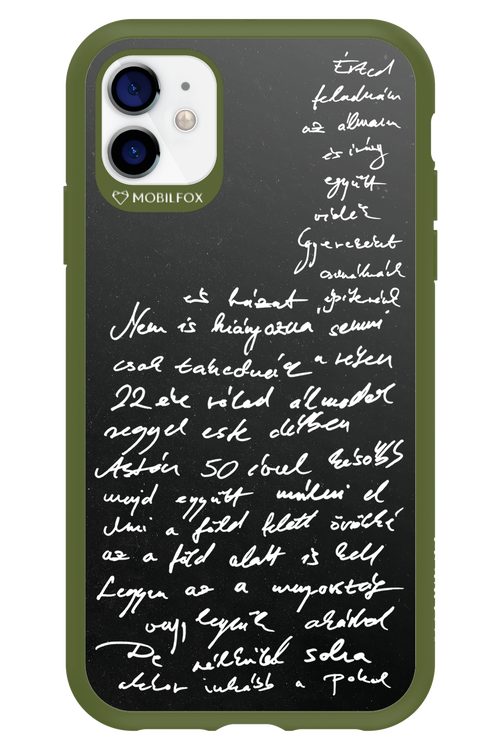 MOBILFOX
Érted
feladnám
az álmom
és irány
együtt
vidék
Gyerekeket
csinálnánk
és házat építenénk
Nem is hiányozna semmi
csak takednánk a résen
22 éve rólad álmodok
reggel este délben
Aztán 50 évvel később
majd együtt múlni el
Ami a föld felett örökké
az a föld alatt is kell
Legyen az a mennyország
vagy legyünk akárhol
De nélküled soha
akkor inkább a pokol